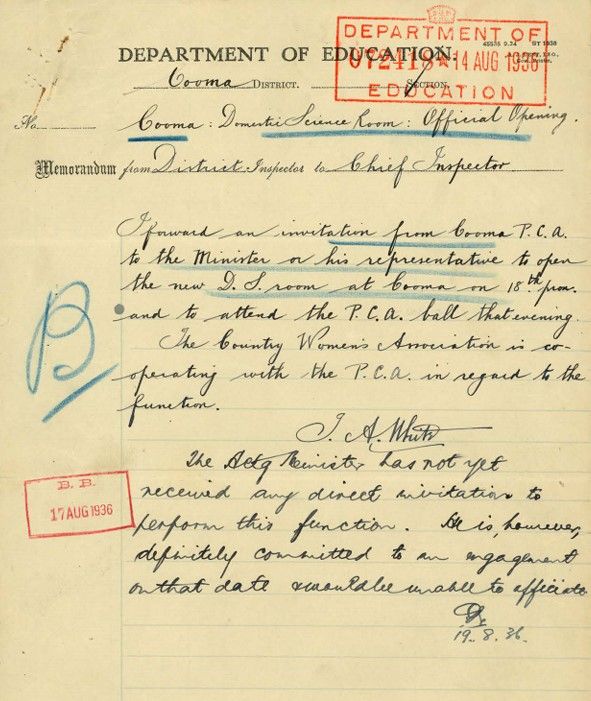 DEPARTMENT OF
072418 ★ 14 AUG 1936
EDUCATION
45535 9.24 ST 1038
DEPARTMENT OF EDUCATION.
Cooma DISTRICT. SECTION.
No. Cooma: Domestic Science Room: Official Opening.
Memorandum from District Inspector to Chief Inspector
I forward an invitation from Cooma P.C.A.
to the Minister or his representative to open
the new D.S. room at Cooma on 18th prox.
and to attend the P.C.A. ball that evening.
The Country Women's Association is co-
operating with the P.C.A. in regard to the
function.
J. A. White
B
The Actg Minister has not yet
received any direct invitation to
perform this function. He is, however,
definitely committed to an engagement
on that date & would be unable to officiate.
19.8.36.
B. B.
17 AUG 1936